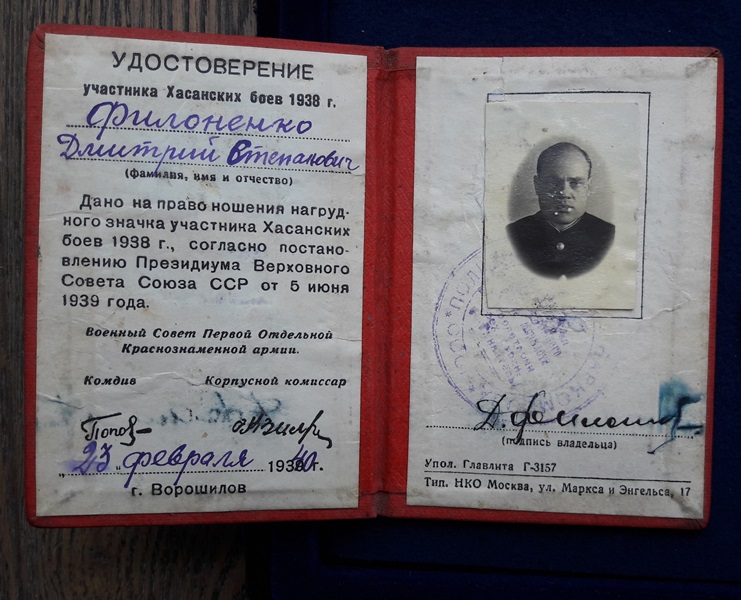 УДОСТОВЕРЕНИЕ
участника Хасанских боев 1938 г.
Филоненко
Дмитрий Степанович
(фамилия, имя и отчество)
Дано на право ношения нагруд-
ного значка участника Хасанских
боев 1938 г., согласно постано-
влению Президиума Верховного
Совета Союза ССР от 5 июня
1939 года.
Военный Совет Первой Отдельной
Краснознаменной армии.
Комдив Корпусной комиссар
Попов
"23" февраля 1940 г.
г. Ворошилов
Д. Филоненко
(подпись владельца)
Упол. Главлита Г-3157
Тип. НКО Москва, ул. Маркса и Энгельса, 17